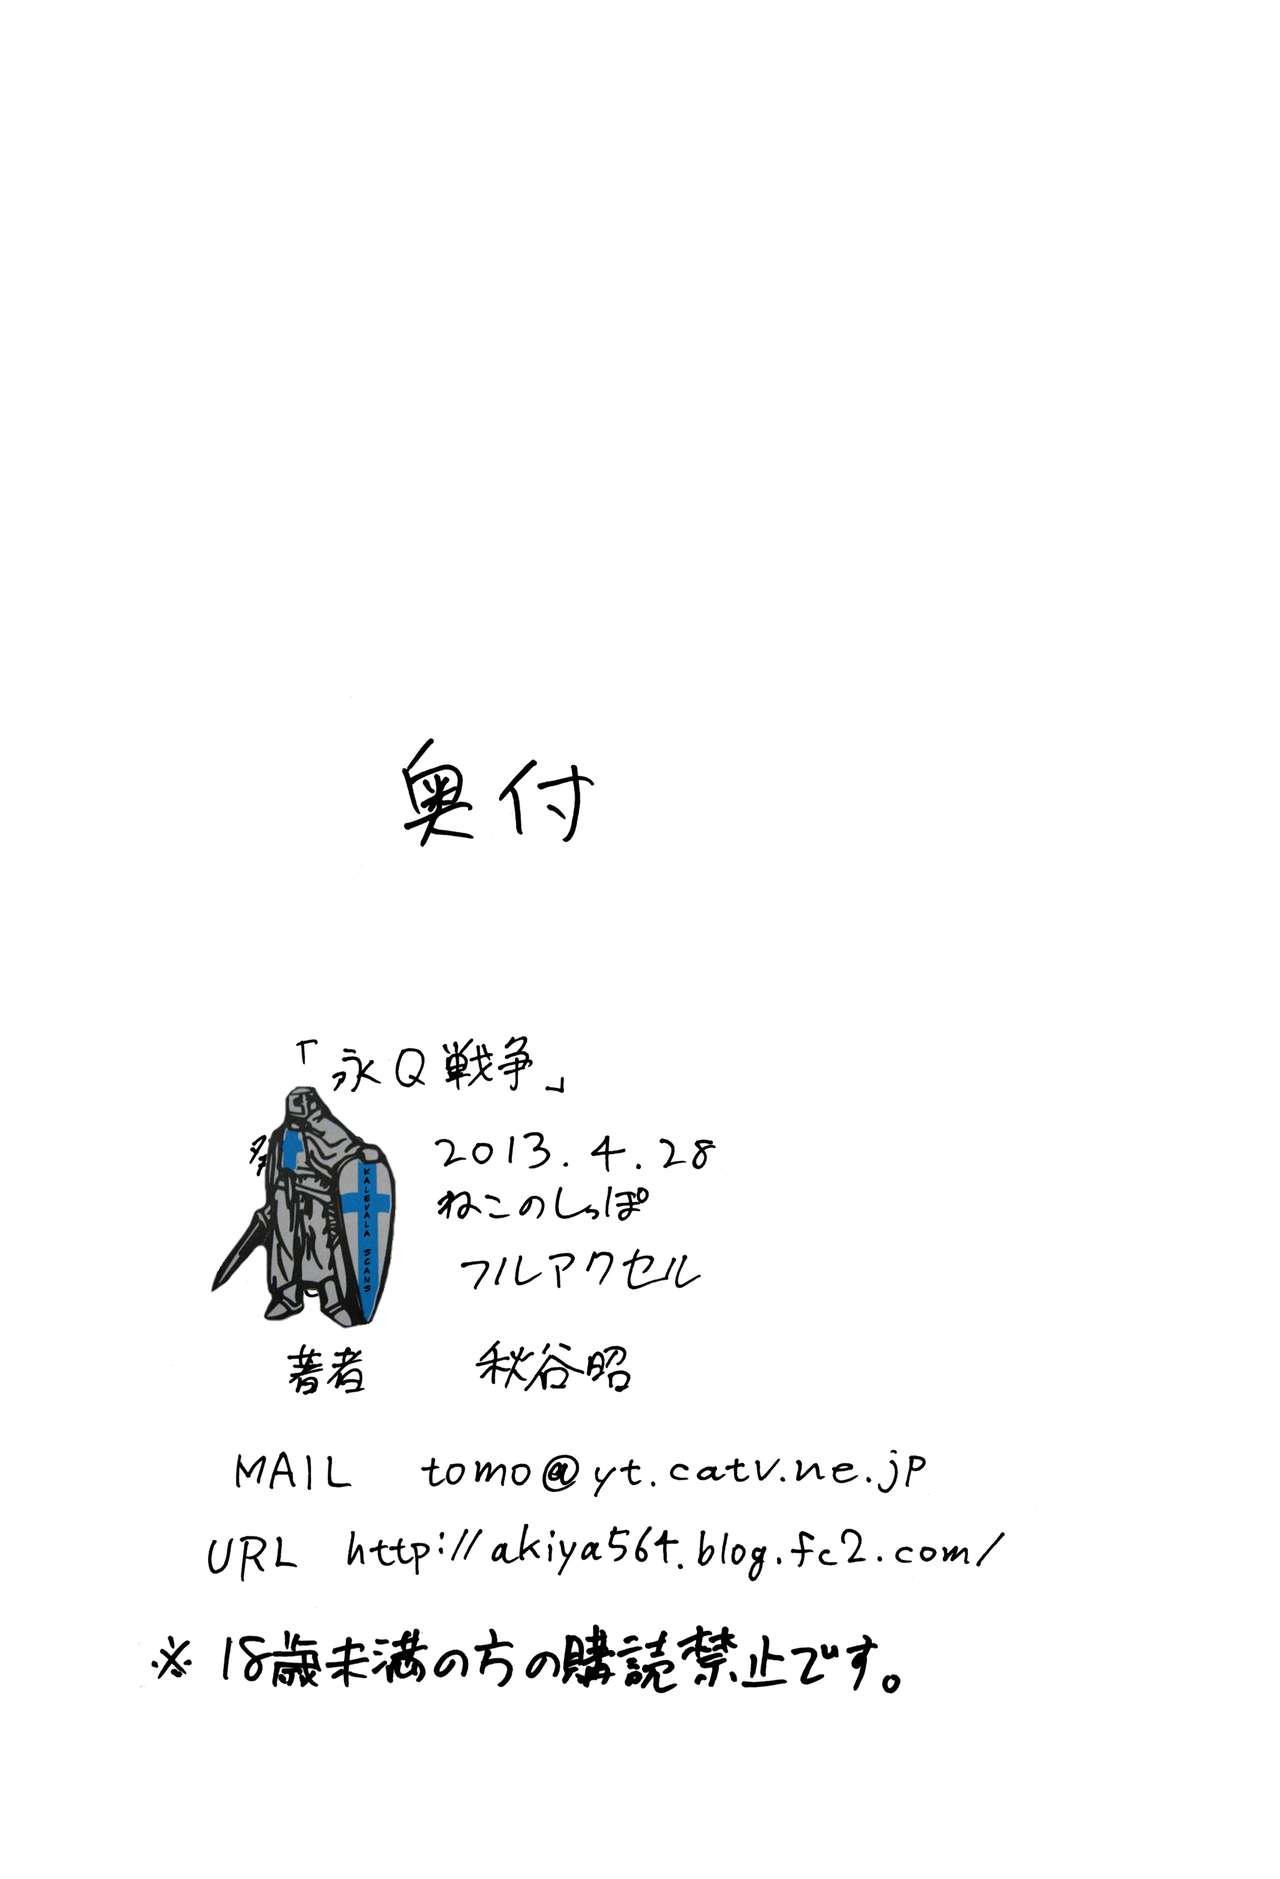 奥付
「永Q戦争」
2013.4.28
ねこのしっぽ
フルアクセル
KALEVALA SCANS
著者 秋谷昭
MAIL tomo@yt.catv.ne.jp
URL http://akiya564.blog.fc2.com/
※ 18歳未満の方の購読禁止です。